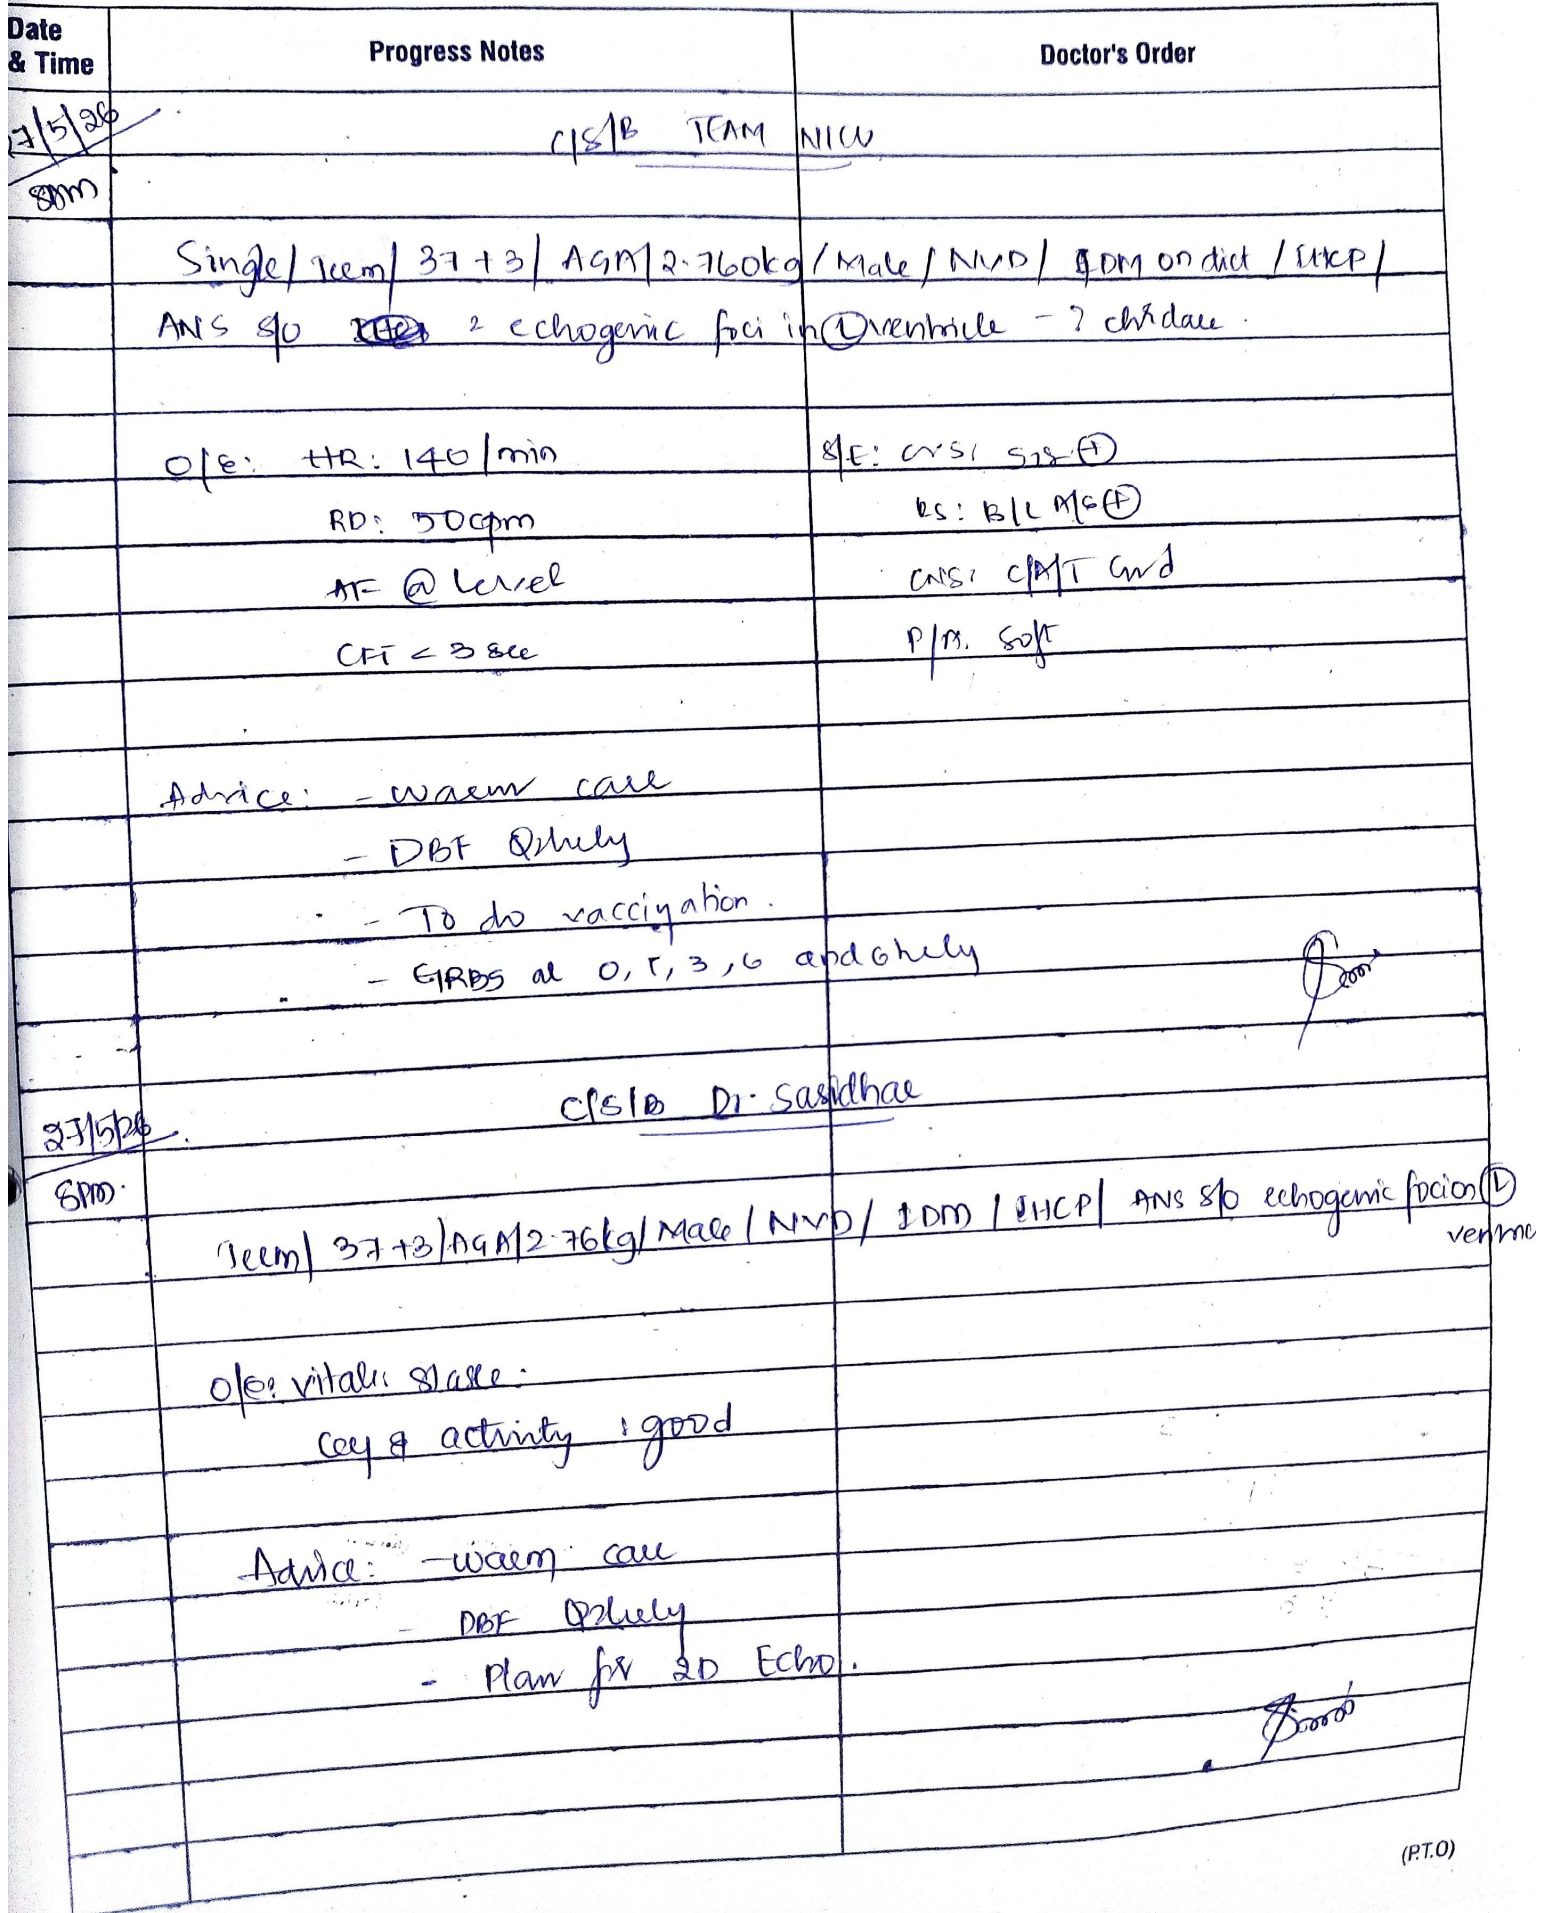 Date & Time Progress Notes Doctor's Order
27/5/26 C/S/B TEAM NICU
8pm
Single/Term/ 37+3/ AGA/2.760kg/Male/NVD/ IDM on diet / IHCP/
ANS s/o 2 echogenic foci in (L) ventricle - ? chordae.
O/E: HR: 140/min S/E: CVS: S1S2 (+)
RR: 50cpm RS: B/L A/E (+)
AF @ level CNS: C/A/T Good
CFT < 3 sec P/A: Soft
Advice: - warm care
- DBF Q2hrly
- To do vaccination.
- GRBS at 0, 1, 3, 6 and 6hrly
C/S/B Dr. Sasidhar
27/5/26
8pm.
Term/ 37+3/AGA/2.76kg/Male/NVD/ IDM / IHCP/ ANS s/o echogenic foci on (L)
O/E: vitals: stable.
Cry & activity : good
Advice: - warm care
- DBF Q2hrly
- Plan for 2D Echo.
(P.T.O)